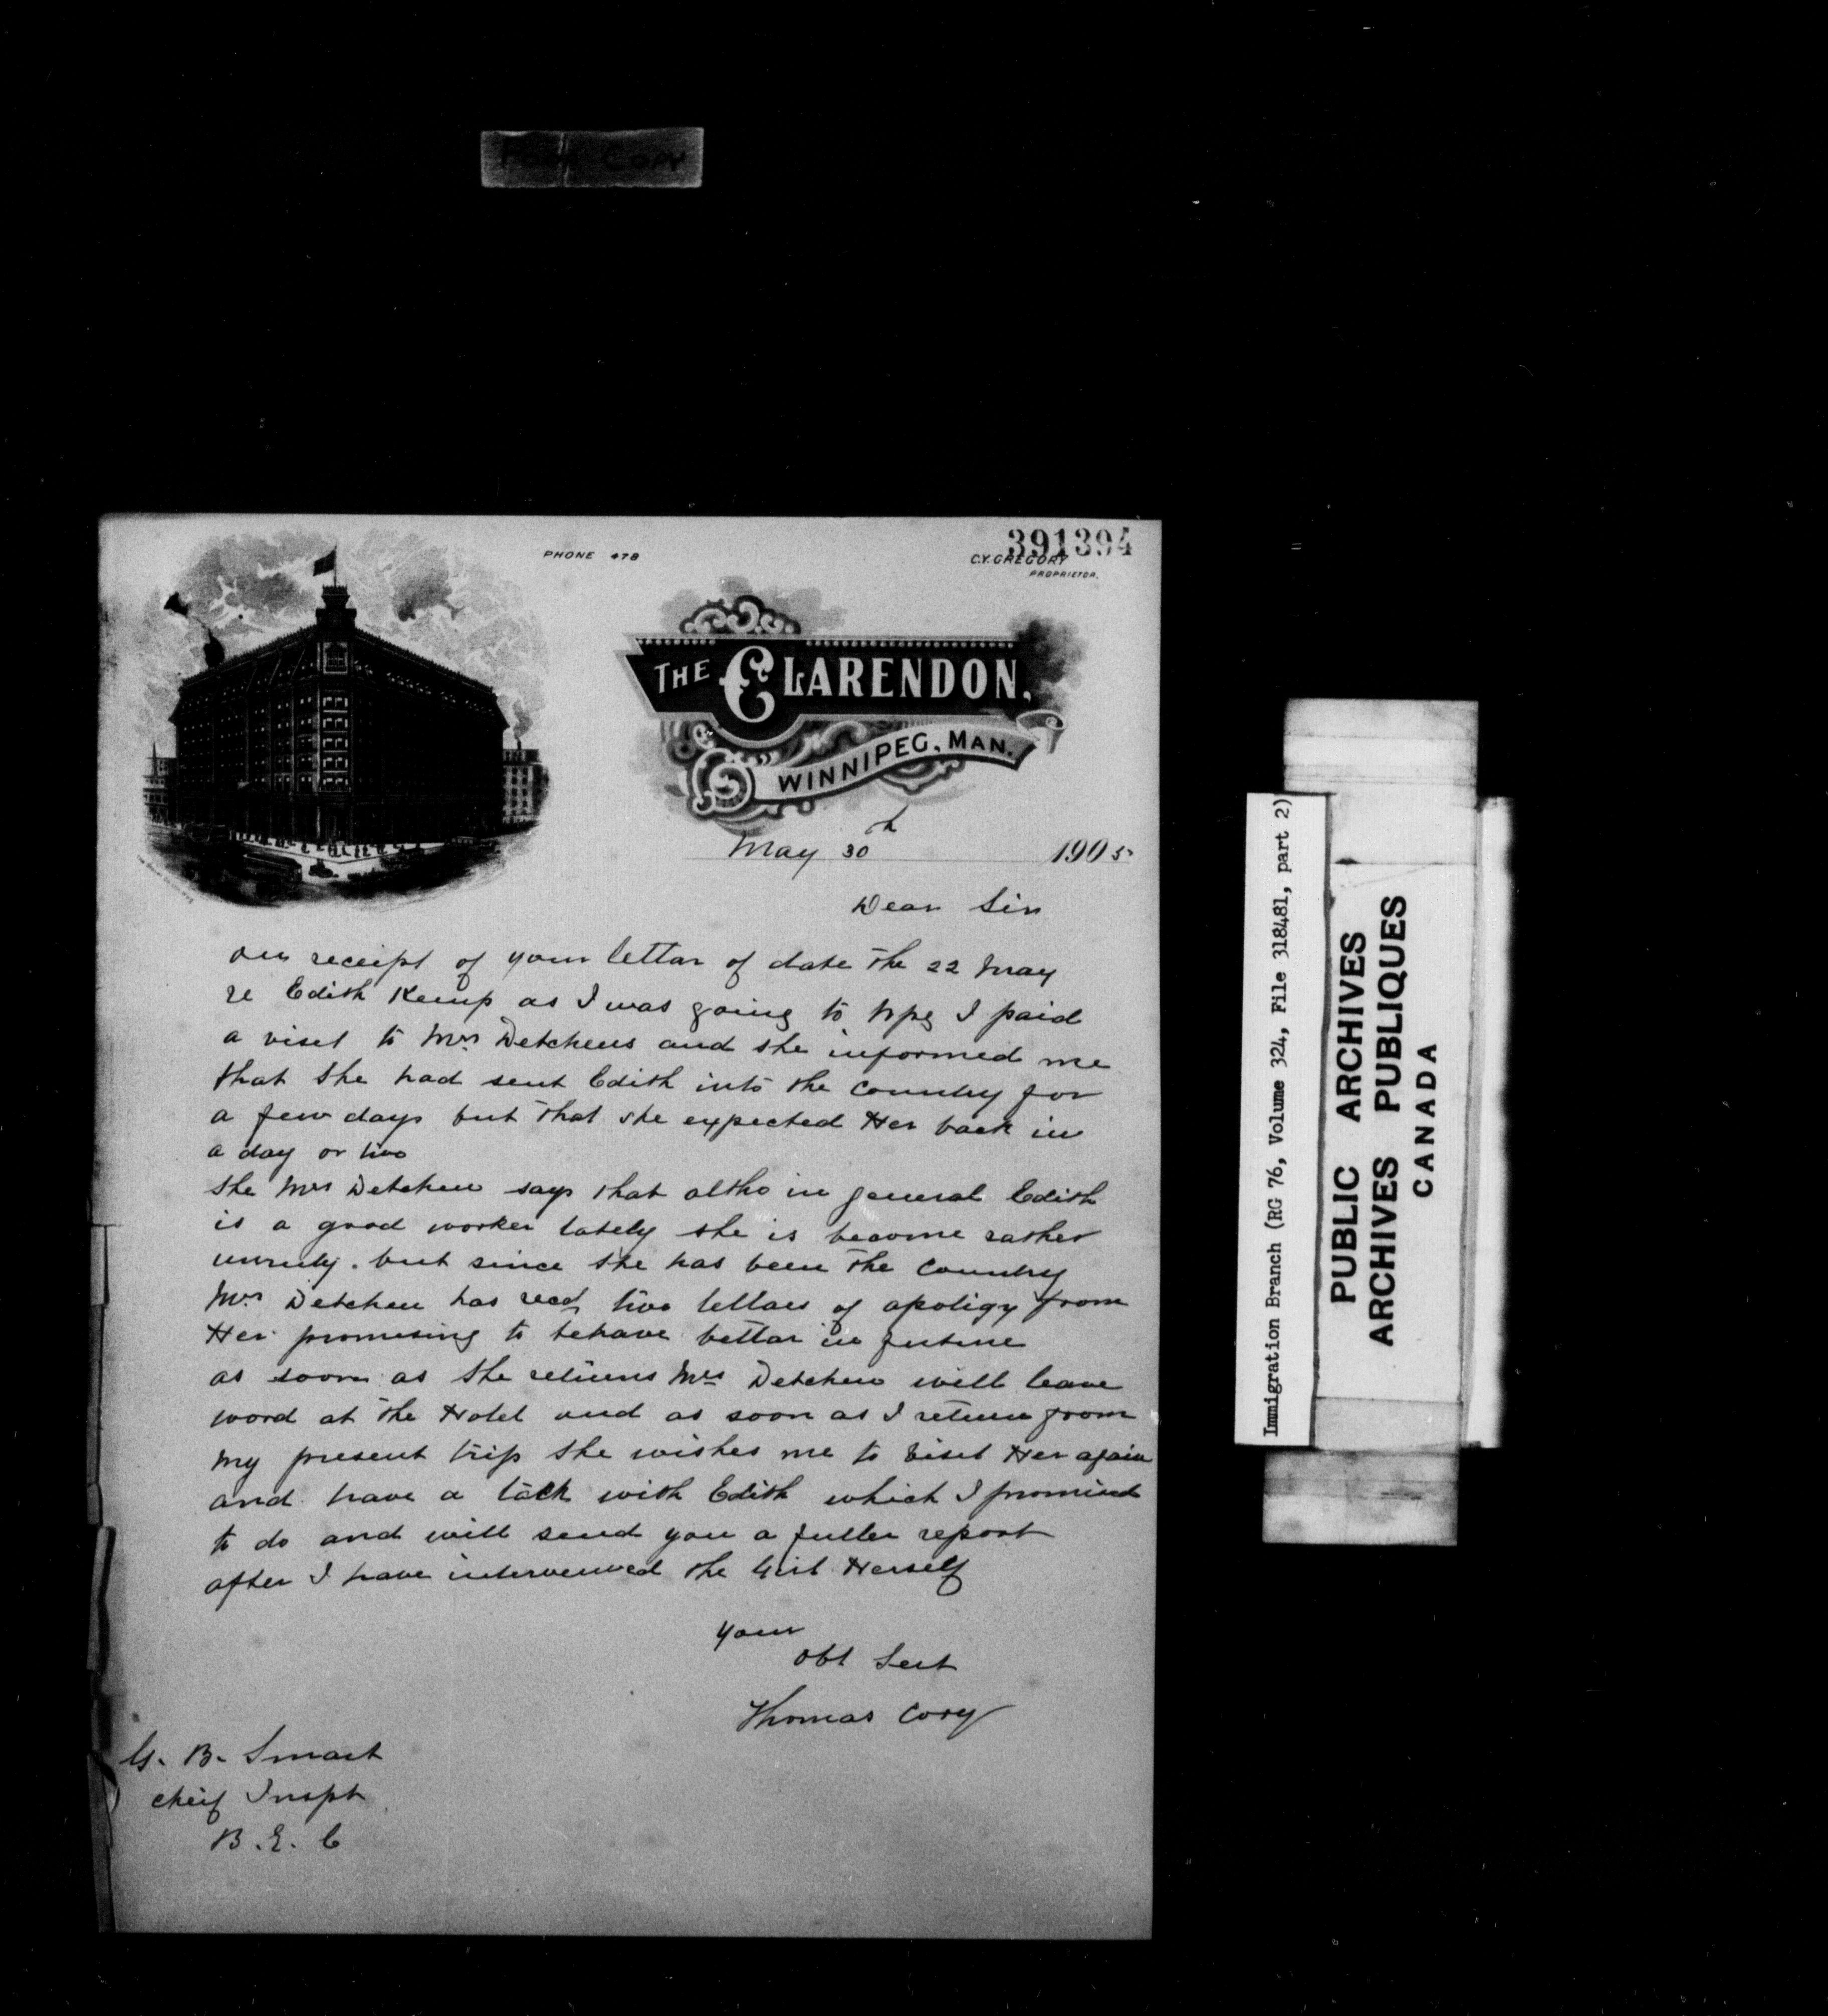 Poor Copy
391394
PHONE 478
C.Y. GREGORY
PROPRIETOR.
THE CLARENDON,
WINNIPEG, MAN.
May 30th 1905
Dear Sir
on receipt of your lettar of date the 22 May
re Edith Kemp as I was going to Wpg I paid
a visit to Mrs Detchens and she informed me
that she had sent Edith into the Country for
a few days but that she expected Her back in
a day or two
she Mrs Detchen says that altho in general Edith
is a good worker lately she is become rather
unruly. but since she has been the Country
Mrs Detchen has recd two lettars of apoligy from
Her promising to behave bettar in future
as soon as she returns Mrs Detchen will leave
word at the Hotel and as soon as I return from
my present trip she wishes me to visit Her again
and have a talk with Edith which I promised
to do and will send you a fuller report
after I have interveiwed the Girl Herself
your
obt Sert
Thomas Cory
G. B. Smart
cheif Inspt
B. E. C
Immigration Branch (RG 76, Volume 324, File 318481, part 2)
PUBLIC ARCHIVES
ARCHIVES PUBLIQUES
CANADA